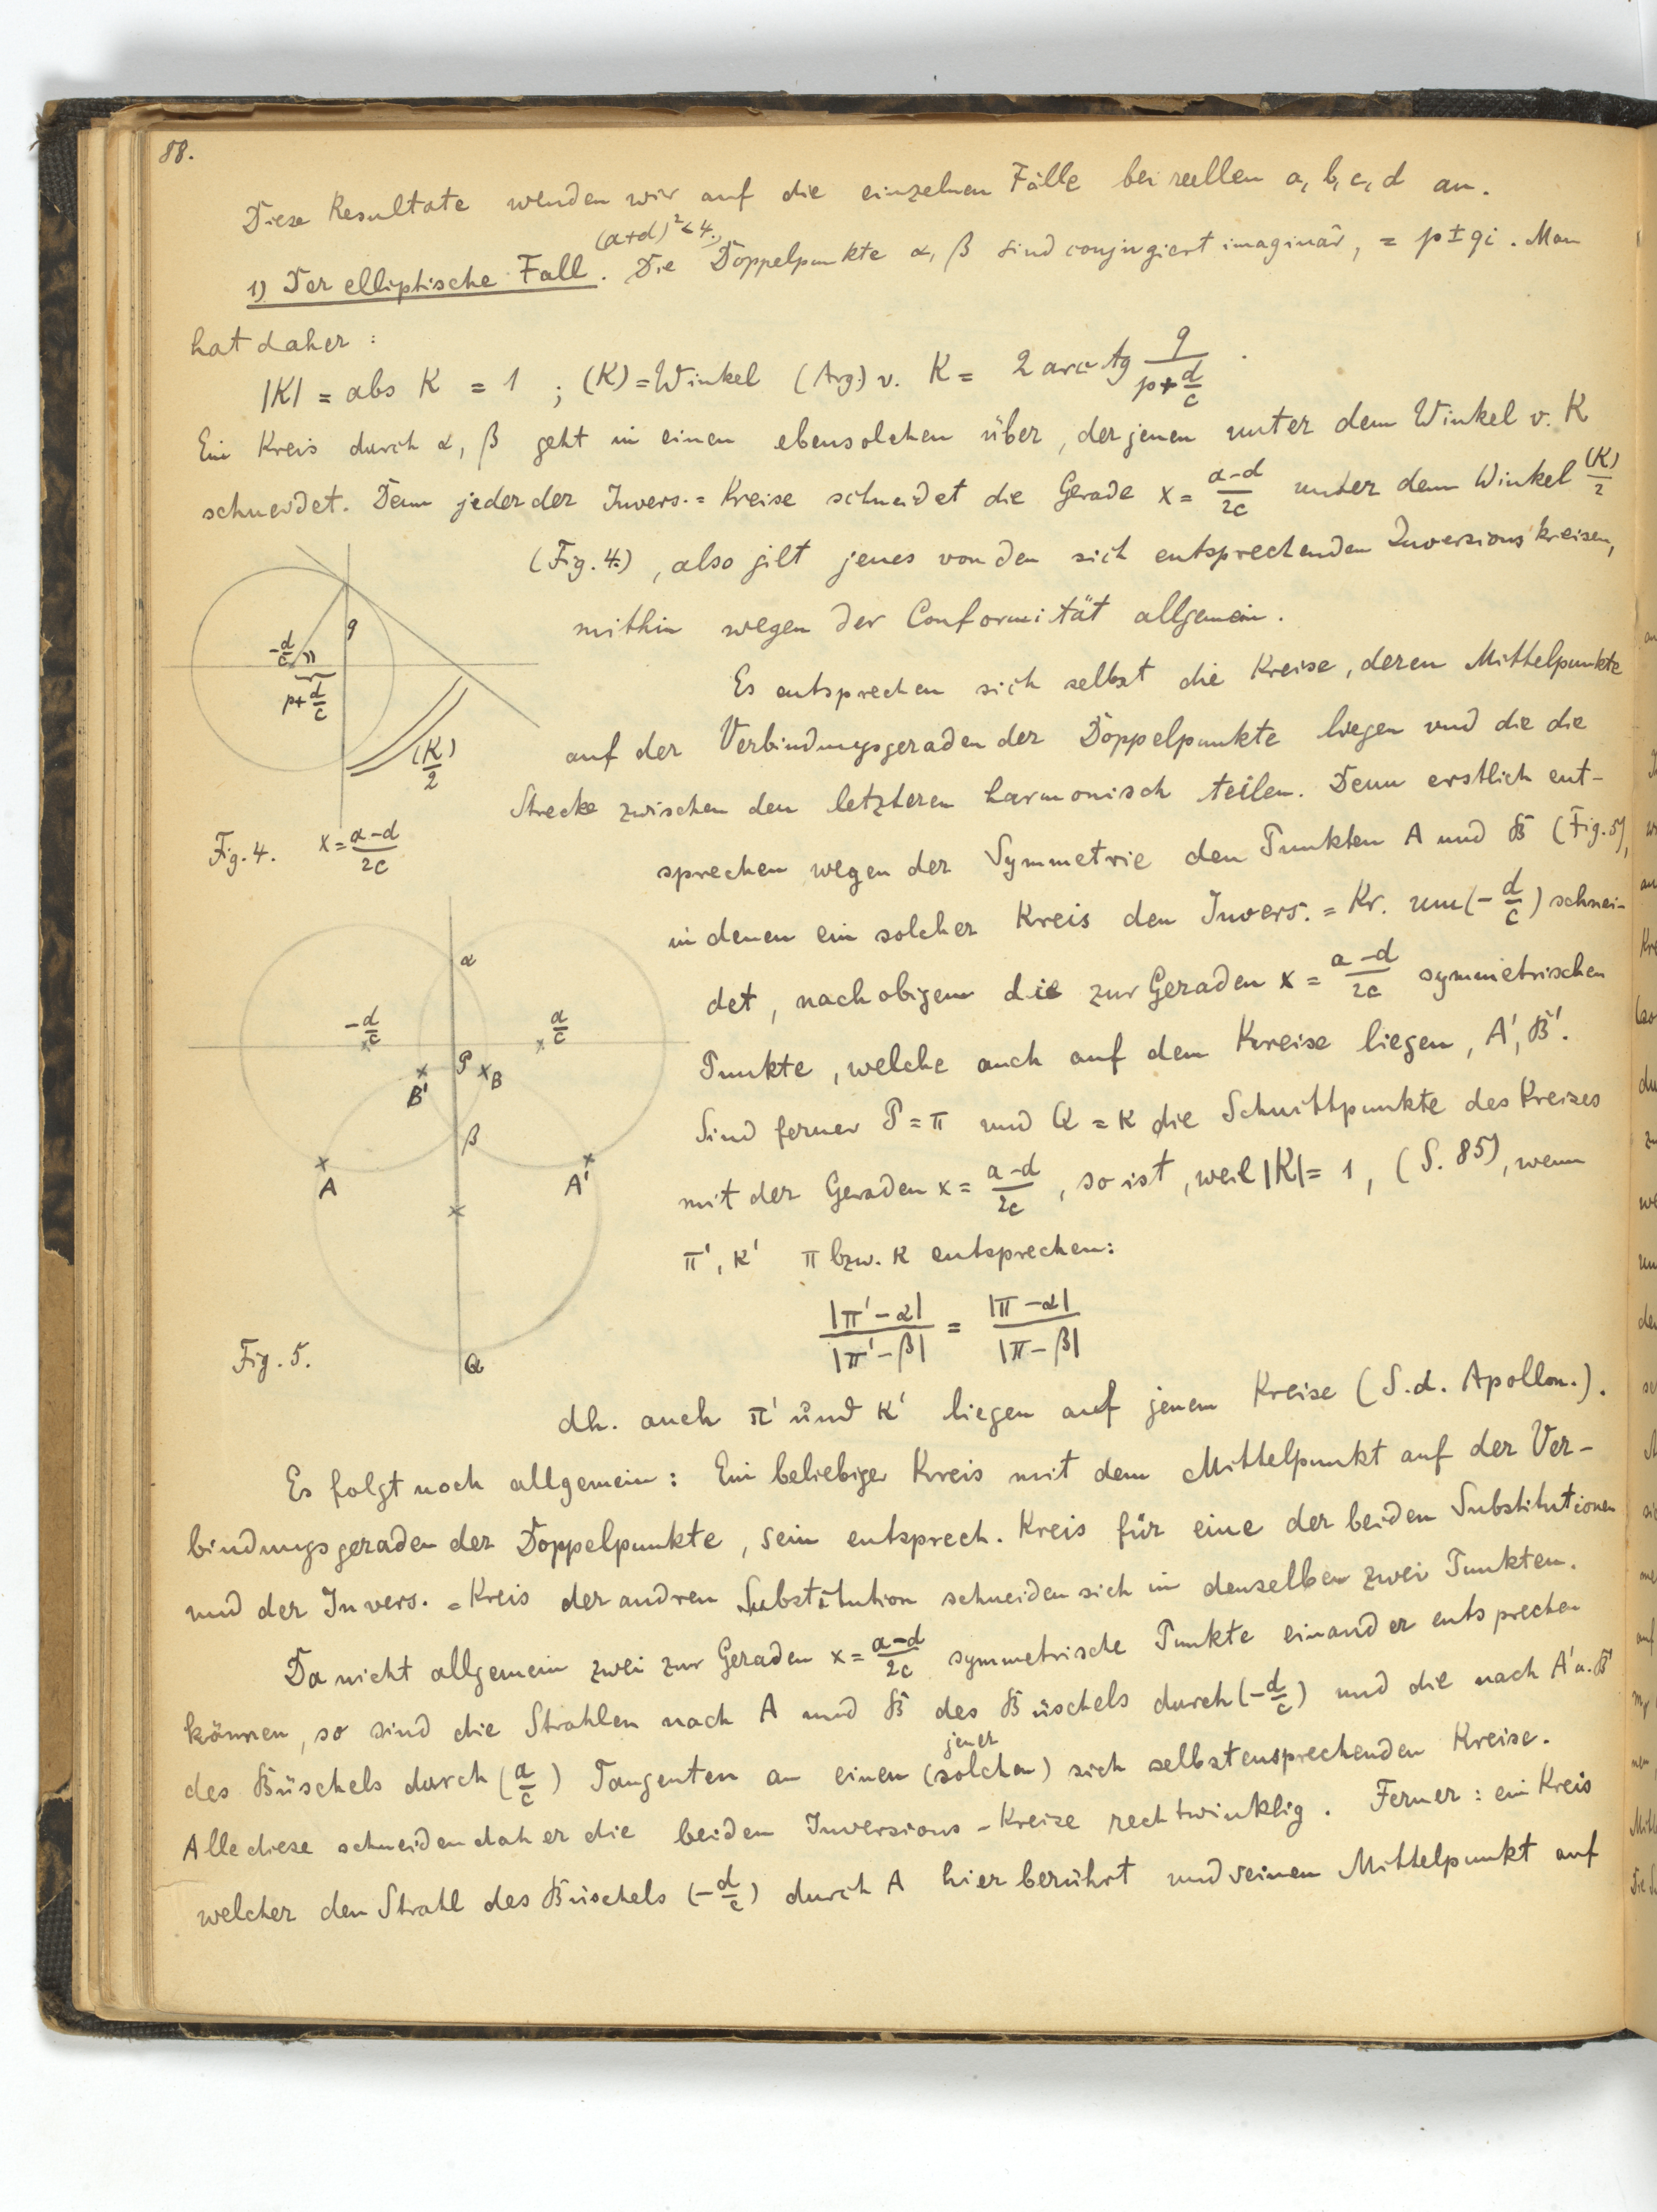 88.
Diese Resultate wenden wir auf die einzelnen Fälle bei reellen a, b, c, d an.
(a+d)² < 4.,
1) Der elliptische Fall. Die Doppelpunkte α, β sind conjugiert imaginär, = p ± qi. Man
hat daher:
|K| = abs K = 1 ; (K) = Winkel (Arg.) v. K = 2 arc tg q/(p + d/c) .
Ein Kreis durch α, β geht in einen ebensolchen über, der jenen unter dem Winkel v. K
schneidet. Denn jeder der Invers.=Kreise schneidet die Gerade x = (a-d)/2c unter dem Winkel (K)/2
(Fig. 4.), also gilt jenes von den sich entsprechenden Inversionskreisen,
mithin wegen der Conformität allgemein.
q
-d/c
p+d/c
(K)/2
Fig. 4. x = (a-d)/2c
Es entsprechen sich selbst die Kreise, deren Mittelpunkte
auf der Verbindungsgeraden der Doppelpunkte liegen und die die
Strecke zwischen den letzteren harmonisch teilen. Denn erstlich ent-
sprechen wegen der Symmetrie den Punkten A und B (Fig. 5),
in denen ein solcher Kreis den Invers.=Kr. um (-d/c) schnei-
det, nach obigem die zur Geraden x = (a-d)/2c symmetrischen
Punkte, welche auch auf dem Kreise liegen, A', B'.
Sind ferner P = π und Q = κ die Schnittpunkte des Kreises
mit der Geraden x = (a-d)/2c, so ist, weil |K| = 1, (S. 85), wenn
π', κ' π bzw. κ entsprechen:
|π'-α|/|π'-β| = |π-α|/|π-β|
α
-d/c
a/c
P
B'
B
β
A
A'
Q
Fig. 5.
dh. auch π' und κ' liegen auf jenem Kreise (S. d. Apollon.).
Es folgt noch allgemein: Ein beliebiger Kreis mit dem Mittelpunkt auf der Ver-
bindungsgeraden der Doppelpunkte, sein entsprech. Kreis für eine der beiden Substitutionen
und der Invers.=Kreis der andren Substitution schneiden sich in denselben zwei Punkten.
Da nicht allgemein zwei zur Geraden x = (a-d)/2c symmetrische Punkte einander entsprechen
können, so sind die Strahlen nach A und B des Büschels durch (-d/c) und die nach A' u. B'
jener
des Büschels durch (a/c) Tangenten an einen (solchen) sich selbstentsprechenden Kreise.
Alle diese schneiden daher die beiden Inversions-Kreise rechtwinklig. Ferner: ein Kreis
welcher den Strahl des Büschels (-d/c) durch A hier berührt und seinen Mittelpunkt auf